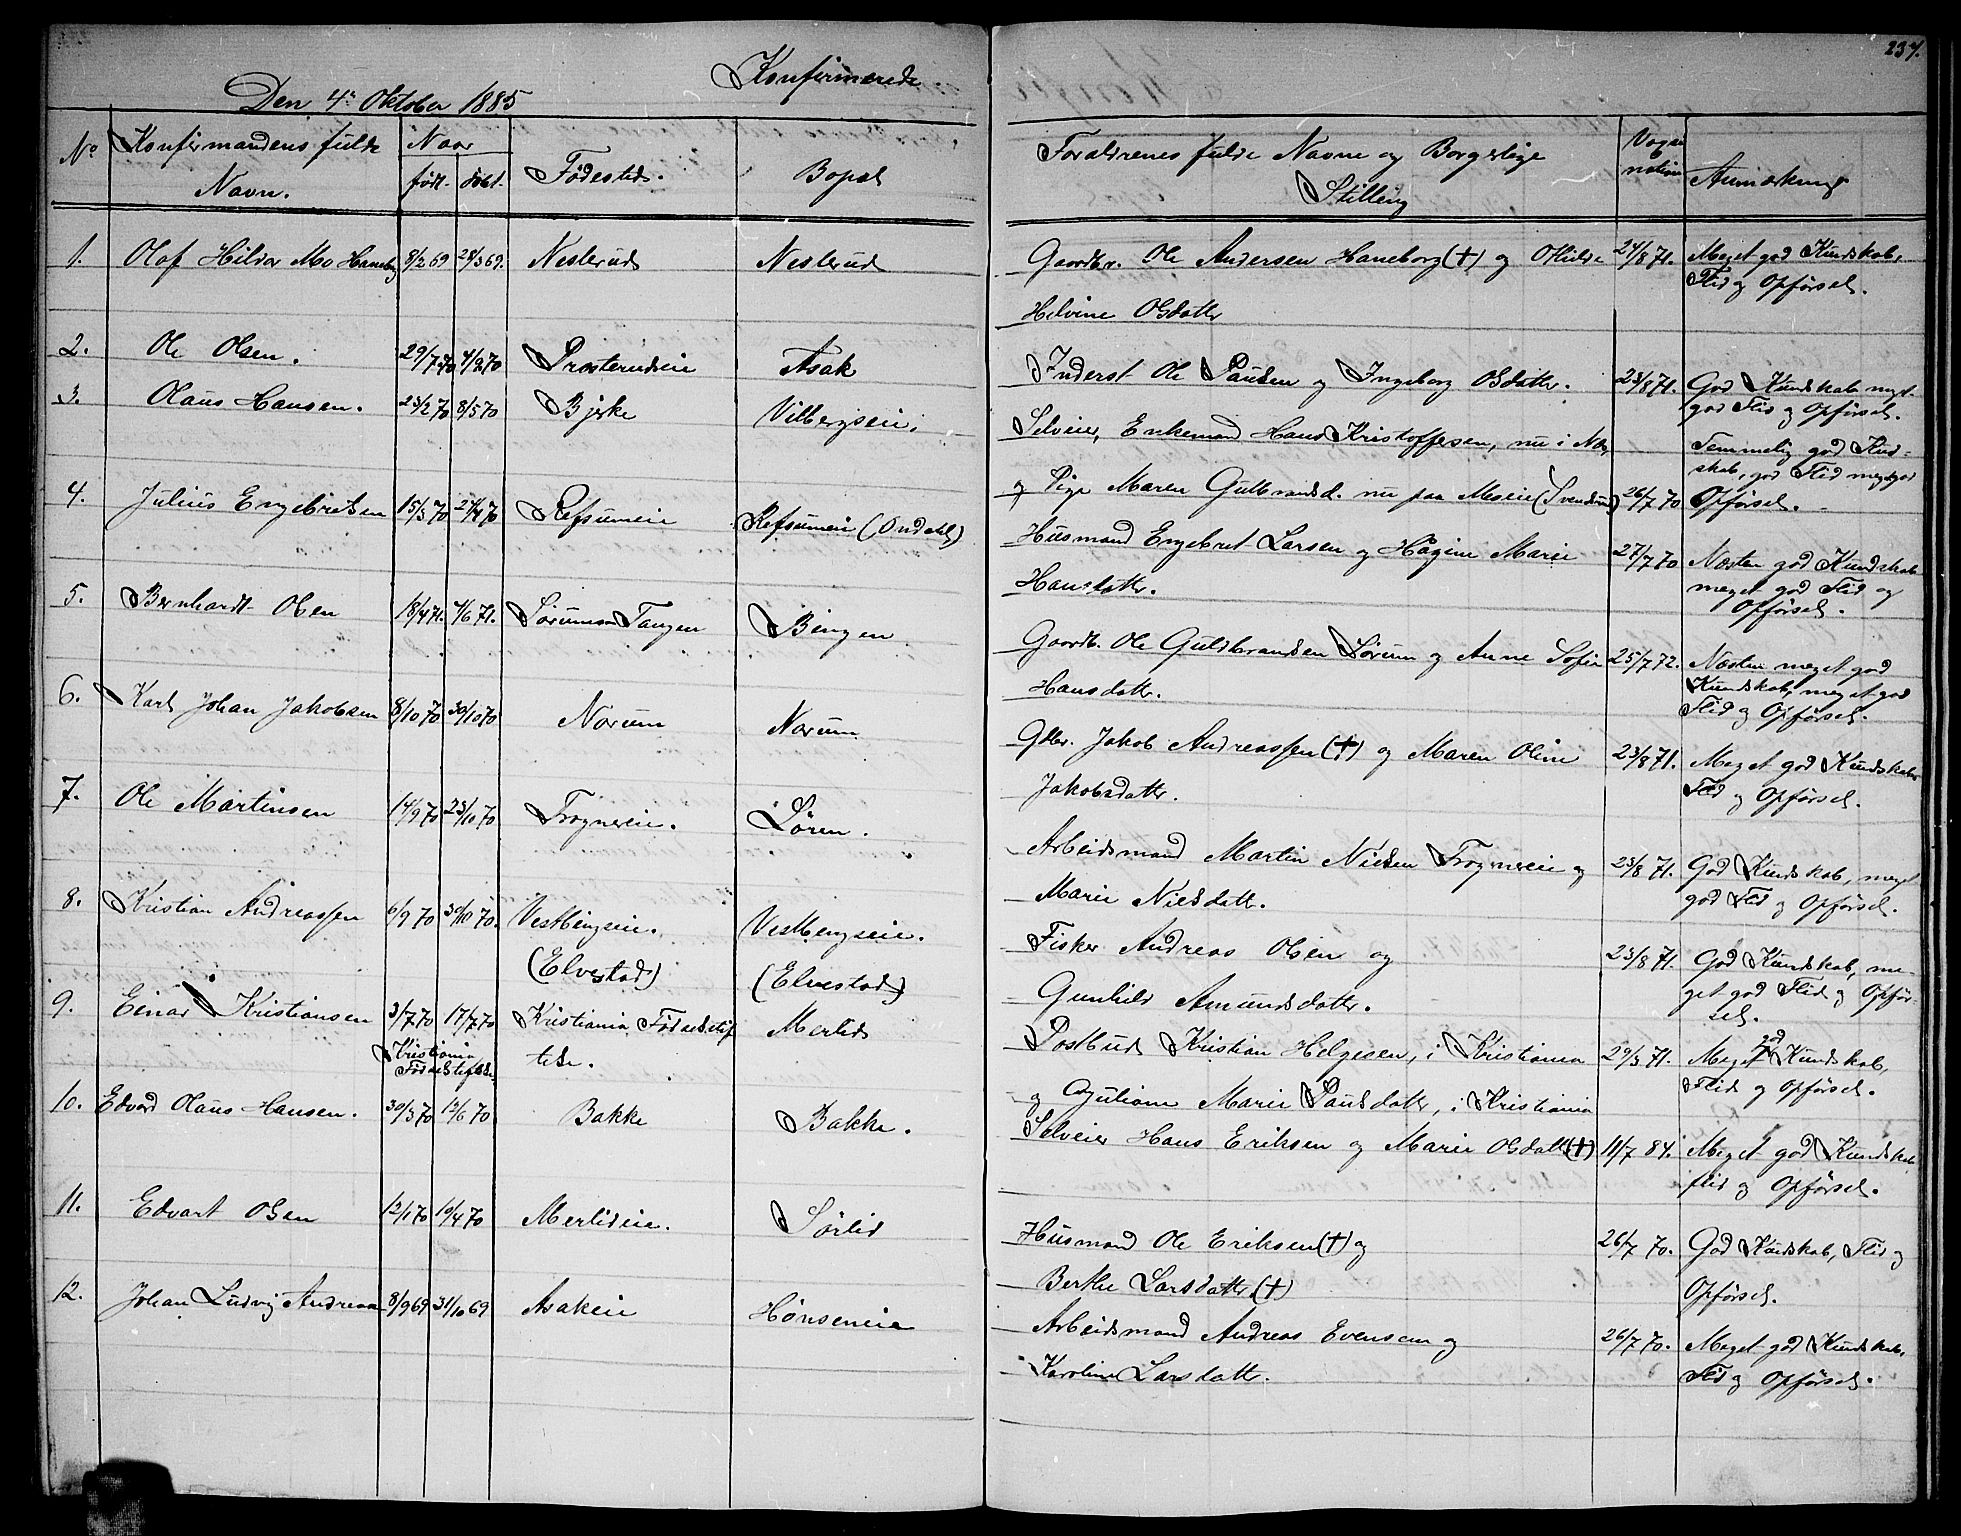 237.
Konfirmerede
Den 4de Oktober 1885
No Konfirmandens fulde Navn. Naar født. døbt. Fødested. Bopæl Forældrenes fulde Navne og Borgerlige Stilling Anmærkning
1. Olaf Hilvar Mo Haneborg 8/2 69 28/3 69. Nesterud Nesterud Gaardbr. Ole Andersen Haneborg (†) og Othilde 24/8 71. Meget god Kundskab,
Helvine Olsdatter Flid og Opførsel.
2. Ole Olsen. 29/7 70 4/9 70 Prosterudeie Asak Inderst Ole Paulsen og Ingeborg Olsdatter. 23/8 71. God Kundskab meget
god Flid og Opførsel.
3. Olaus Hansen. 23/2 70 8/5 70 Bjerke Vilbergseie. Selveier, Enkemand Hans Kristoffersen, nu i Næs, Temmelig god Kund-
skab, god Flid meget god
og Pige Maren Gulbrandsd. nu paa Moseie (Svendsrud) 26/7 70 Opførsel.
4. Julius Engebretsen 15/3 70 24/4 70 Refsumeie Refsumeie (Ondahl) Husmand Engebret Larsen og Hagine Marie 27/7 70 Næsten god Kundskab
Hansdatter. meget god Flid og
Opførsel.
5. Bernhardt Olsen 18/4 71. 4/6 71. Sørumsand Tangen Bingen Gaardb. Ole Guldbrandsen Sørum og Anne Sofie 25/7 72. Næsten meget god
Hansdatter. Kundskab, meget god
Flid og Opførsel.
6. Karl Johan Jakobsen 8/10 70 30/10 70 Norum Norum Gdbr. Jakob Andreassen (†) og Maren Oline 23/8 71. Meget god Kundskab
Jakobsdatter. Flid og Opførsel.
7. Ole Martinsen 14/9 70 23/10 70 Frogneeie. Løren. Arbeidsmand Martin Nielsen Frogneeie og 23/8 71. God Kundskab, meget
Marie Nielsdatt. god Flid og Opførsel.
8. Kristian Andreassen 6/9 70 30/10 70. Vestbyengseie. Vestbyengseie. Fisker Andreas Olsen og 23/8 71. God Kundskab, me-
(Elvestad) (Elvestad) Gunhild Amundsdatter. get god Flid og Opfør-
sel.
9. Einar Kristiansen 3/7 70 17/7 70 Kristiania Fødselsstif- Merlid Postbud Kristian Helgesen, i Kristiania 29/3 71. Meget god Kundskab,
Kristiania telse. Flid og Opførsel.
Fødselsstiftelse. og Gjuliane Marie Paulsdatter, i Kristiania
10. Edvard Olaus Hansen. 30/3 70 12/6 70 Bakke Bakke. Selveier Hans Eriksen og Marie Olsdatt (†) 11/7 84. Meget god Kundskab
flid og Opførsel.
11. Edvart Olsen 12/1 70 10/4 70 Merlideie. Sørlid Husmand Ole Eriksen (†) og 26/7 70. God Kundskab, Flid og
Berthe Larsdatter (†) Opførsel.
12. Johan Ludvig Andreas 8/9 69 31/10 69 Asakeie Hønseneie Arbeidsmand Andreas Evensen og 26/7 70. Meget god Kundskab,
Karoline Larsdatter. Flid og Opførsel.